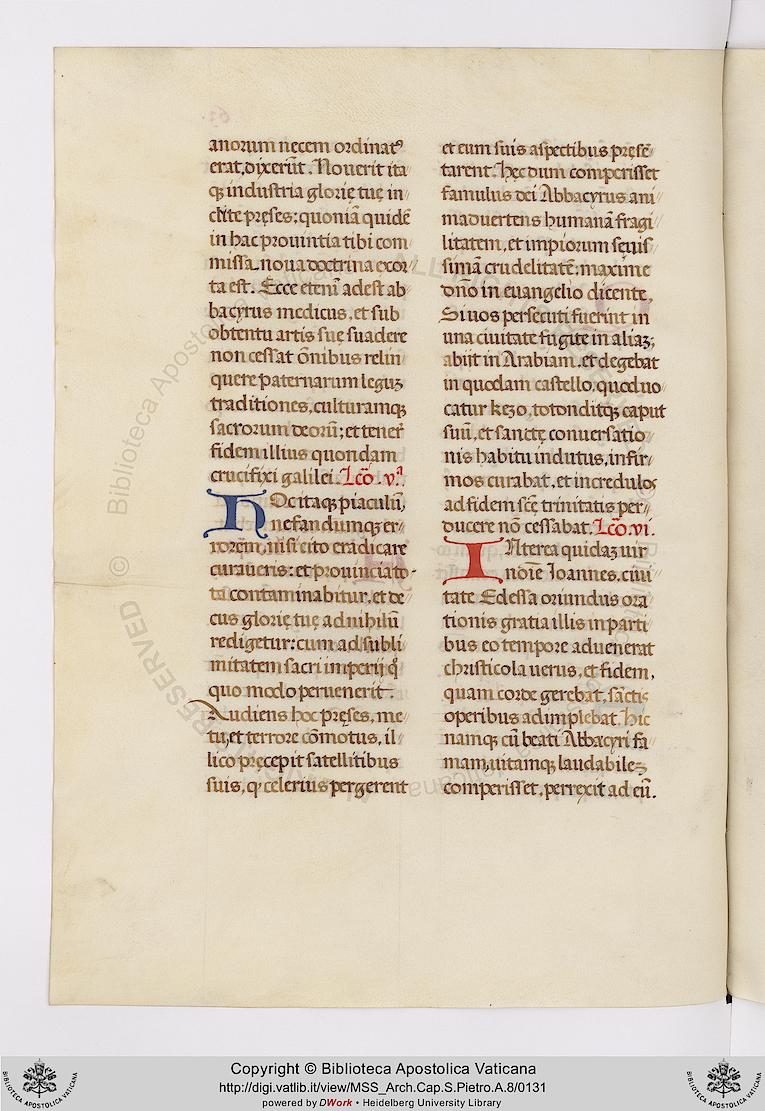 anorum necem ordinatꝰ
erat, dixerūt. Nouerit ita
qꝫ industria glorię tuę in
clite pręses: quoniā quidē
in hac prouintia tibi com
missa noua doctrina exor
ta est. Ecce etenī adest ab
bacyrus medicus, et sub
obtentu artis suę suadere
non cessat ōnibus relin
quere paternarum legūꝫ
traditiones, culturamqꝫ
sacrorum deorū; et tener̄
fidem illius quondam
crucifixi galilei. Lc̄o .v.ª
Hoc itaqꝫ piaculū,
nefandumqꝫ er
rorem, nisi cito eradicare
curaueris: et prouincia to
ta contaminabitur, et de
cus glorię tuę ad nihilū
redigetur: cum ad subli
mitatem sacri imperij q̄
quo modo peruenerit.
Audiens hoc pręses, me
tu, et terrore cōmotus, il
lico pręcepit satellitibus
suis, qͥ celerius pergerent
et eum suis aspectibus pręsē
tarent. Hęc dum comperisset
famulus dei Abbacyrus ani
maduertens humanā fragi
litatem, et impiorum sęuis
simam crudelitatē: maxime
dn̄o in euangelio dicente,
Si uos persecuti fuerint in
una ciuitate fugite in aliaꝫ;
abijt in Arabiam, et degebat
in quodam castello, quod uo
catur kezo, totonditqꝫ caput
suū, et sanctę conuersatio
nis habitu indutus, infir
mos curabat, et incredulos
ad fidem scē trinitatis per
ducere nō cessabat. Lc̄o .vi.
Interea quidaꝫ uir
noīe Ioannes, ciui
tate Edessa oriundus ora
tionis gratia illis in parti
bus eo tempore aduenerat
christicola uerus, et fidem,
quam corde gerebat, sāctis
operibus adimplebat. Hic
namqꝫ cū beati Abbacyri fa
mam, uitamqꝫ laudabileꝫ
comperisset, perrexit ad eū.
Copyright © Biblioteca Apostolica Vaticana
http://digi.vatlib.it/view/MSS_Arch.Cap.S.Pietro.A.8/0131
powered by DWork • Heidelberg University Library
BIBLIOTECA APOSTOLICA VATICANA
BIBLIOTECA APOSTOLICA VATICANA